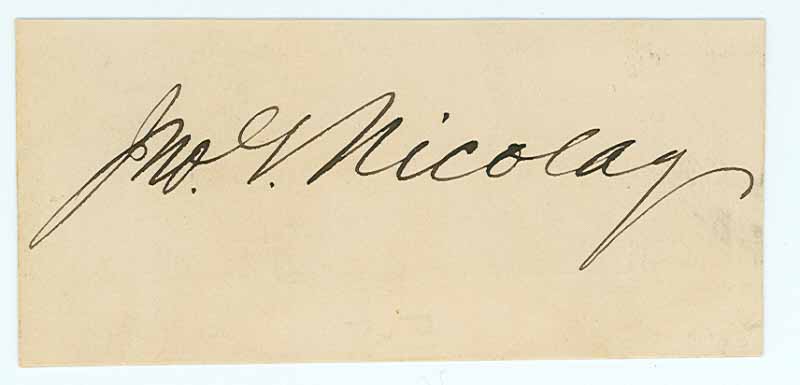 Jno. G. Nicolay